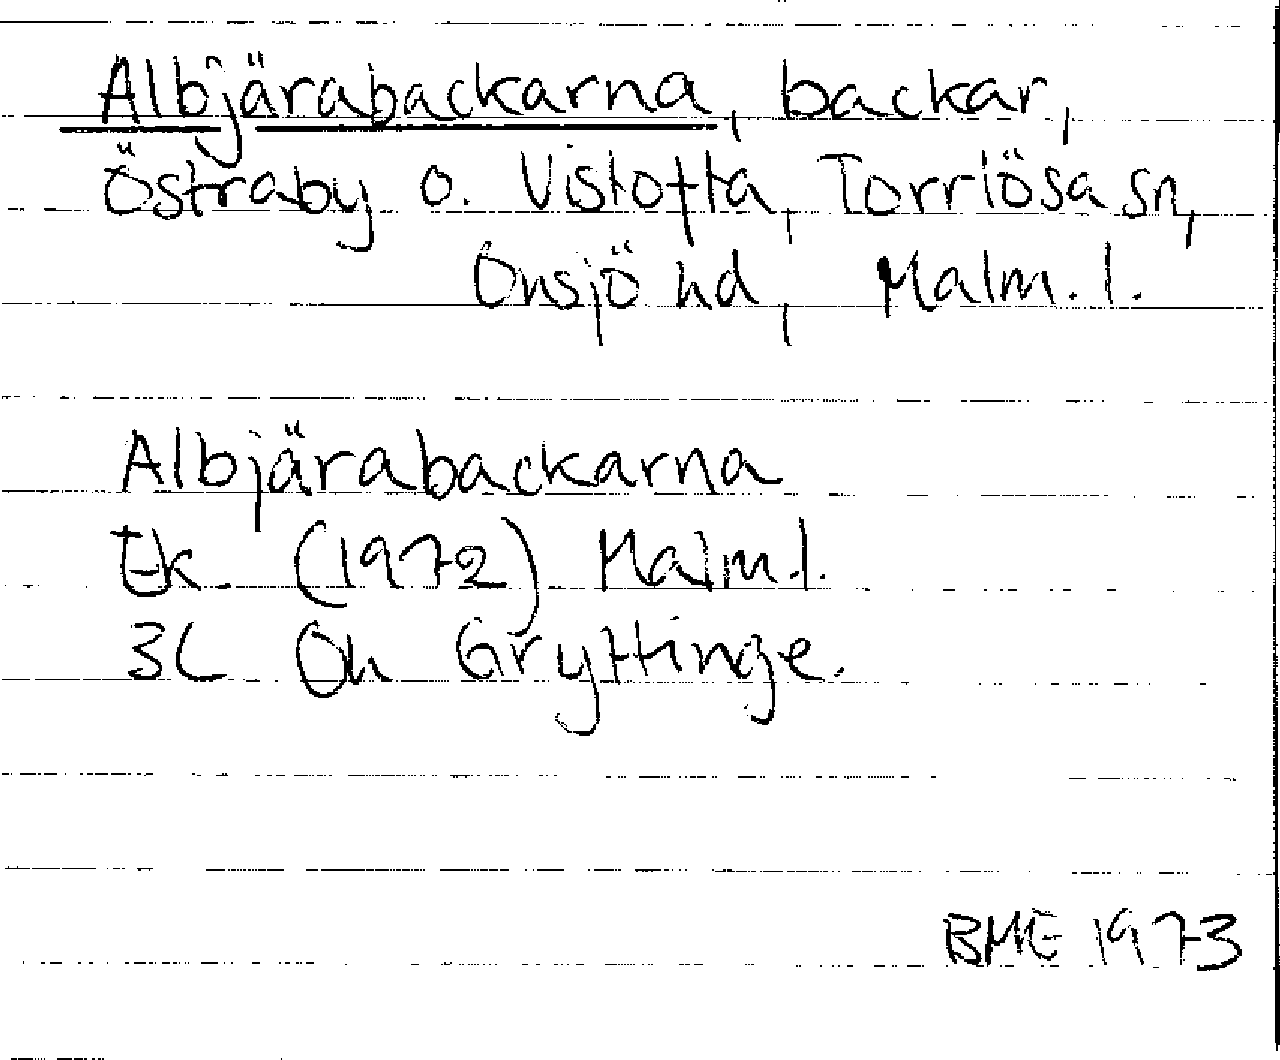 Albjärabackarna, backar,
Östraby o. Vistofta, Torrlösa sn,
Onsjö hd, Malm. l.
Albjärabackarna
Ek (1972) Malm.l.
3C Oh Gryttinge.
BME 1973